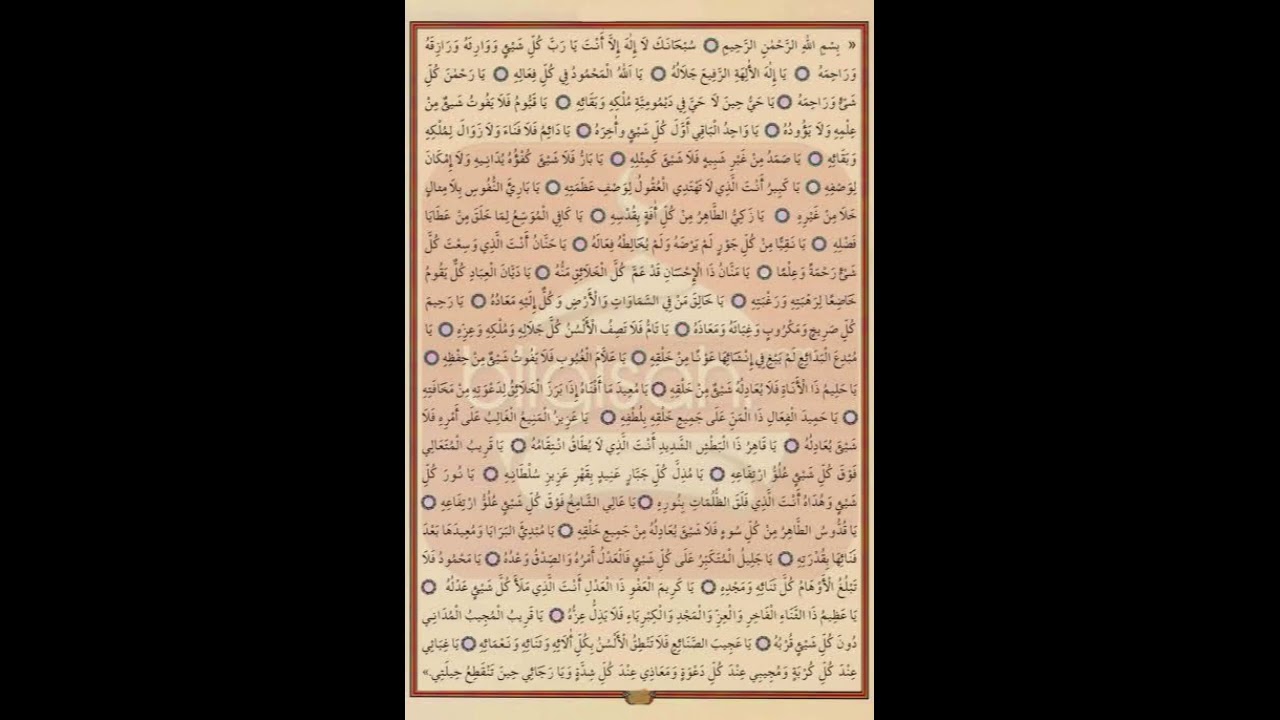 « بِسْمِ اللهِ الرَّحْمٰنِ الرَّحِيمِ سُبْحَانَكَ لَا إِلٰهَ إِلَّا أَنْتَ يَا رَبَّ كُلِّ شَيْئٍ وَوَارِثَهُ وَرَازِقَهُ
وَرَاحِمَهُ يَا إِلٰهَ الْأٰلِهَةِ الرَّفِيعَ جَلَالُهُ يَا اَللهُ الْمَحْمُودُ فِي كُلِّ فِعَالِهِ يَا رَحْمٰنَ كُلِّ
شَيْءٍ وَرَاحِمَهُ يَا حَيُّ حِينَ لَا حَيَّ فِي دَيْمُومِيَّةِ مُلْكِهِ وَبَقَائِهِ يَا قَيُّومُ فَلَا يَفُوتُ شَيْئٌ مِنْ
عِلْمِهِ وَلَا يَؤُودُهُ يَا وَاحِدُ الْبَاقِي أَوَّلَ كُلِّ شَيْئٍ وأٰخِرَهُ يَا دَائِمُ فَلَا فَنَاءَ وَلَا زَوَالَ لِمُلْكِهِ
وَبَقَائِهِ يَا صَمَدُ مِنْ غَيْرِ شَبِيهٍ فَلَا شَيْئَ كَمِثْلِهِ يَا بَارُّ فَلَا شَيْئَ كُفْؤُهُ يُدَانِيهِ وَلَا إِمْكَانَ
لِوَصْفِهِ يَا كَبِيرُ أَنْتَ الَّذِي لَا تَهْتَدِي الْعُقُولُ لِوَصْفِ عَظَمَتِهِ يَا بَارِئَ النُّفُوسِ بِلَا مِثَالٍ
خَلَا مِنْ غَيْرِهِ يَا زَكِيُّ الطَّاهِرُ مِنْ كُلِّ أٰفَةٍ بِقُدْسِهِ يَا كَافِي الْمُوَسِّعُ لِمَا خَلَقَ مِنْ عَطَايَا
فَضْلِهِ يَا نَقِيًّا مِنْ كُلِّ جَوْرٍ لَمْ يَرْضَهُ وَلَمْ يُخَالِطْهُ فِعَالُهُ يَا حَنَّانُ أَنْتَ الَّذِي وَسِعْتَ كُلَّ
شَيْءٍ رَحْمَةً وَعِلْمًا يَا مَنَّانُ ذَا الْإِحْسَانِ قَدْ عَمَّ كُلَّ الْخَلَائِقِ مَنُّهُ يَا دَيَّانَ الْعِبَادِ كُلٌّ يَقُومُ
خَاضِعًا لِرَهْبَتِهِ وَرَغْبَتِهِ يَا خَالِقَ مَنْ فِي السَّمَاوَاتِ وَالْأَرْضِ وَكُلٌّ إِلَيْهِ مَعَادُهُ يَا رَحِيمَ
كُلِّ صَرِيخٍ وَمَكْرُوبٍ وَغِيَاثَهُ وَمَعَاذَهُ يَا تَامُّ فَلَا تَصِفُ الْأَلْسُنُ كُلَّ جَلَالِهِ وَمُلْكِهِ وَعِزِّهِ يَا
مُبْدِعَ الْبَدَائِعِ لَمْ يَبْغِ فِي إِنْشَائِهَا عَوْنًا مِنْ خَلْقِهِ يَا عَلَّامَ الْغُيُوبِ فَلَا يَفُوتُ شَيْئٌ مِنْ حِفْظِهِ
يَا حَلِيمُ ذَا الْأَنَاةِ فَلَا يُعَادِلُهُ شَيْئٌ مِنْ خَلْقِهِ يَا مُعِيدَ مَا أَفْنَاهُ إِذَا بَرَزَ الْخَلَائِقُ لِدَعْوَتِهِ مِنْ مَخَافَتِهِ
يَا حَمِيدَ الْفِعَالِ ذَا الْمَنِّ عَلَى جَمِيعِ خَلْقِهِ بِلُطْفِهِ يَا عَزِيزُ الْمَنِيعُ الْغَالِبُ عَلَى أَمْرِهِ فَلَا
شَيْئَ يُعَادِلُهُ يَا قَاهِرُ ذَا الْبَطْشِ الشَّدِيدِ أَنْتَ الَّذِي لَا يُطَاقُ انْتِقَامُهُ يَا قَرِيبُ الْمُتَعَالِي
فَوْقَ كُلِّ شَيْئٍ عُلُوُّ ارْتِفَاعِهِ يَا مُذِلَّ كُلِّ جَبَّارٍ عَنِيدٍ بِقَهْرِ عَزِيزِ سُلْطَانِهِ يَا نُورَ كُلِّ
شَيْئٍ وَهُدَاهُ أَنْتَ الَّذِي فَلَقَ الظُّلُمَاتِ بِنُورِهِ يَا عَالِي الشَّامِخُ فَوْقَ كُلِّ شَيْئٍ عُلُوُّ ارْتِفَاعِهِ
يَا قُدُّوسُ الطَّاهِرُ مِنْ كُلِّ سُوءٍ فَلَا شَيْئَ يُعَادِلُهُ مِنْ جَمِيعِ خَلْقِهِ يَا مُبْدِئَ الْبَرَايَا وَمُعِيدَهَا بَعْدَ
فَنَائِهَا بِقُدْرَتِهِ يَا جَلِيلُ الْمُتَكَبِّرُ عَلَى كُلِّ شَيْئٍ فَالْعَدْلُ أَمْرُهُ وَالصِّدْقُ وَعْدُهُ يَا مَحْمُودُ فَلَا
تَبْلُغُ الْأَوْهَامُ كُلَّ ثَنَائِهِ وَمَجْدِهِ يَا كَرِيمَ الْعَفْوِ ذَا الْعَدْلِ أَنْتَ الَّذِي مَلَأَ كُلَّ شَيْئٍ عَدْلُهُ
يَا عَظِيمُ ذَا الثَّنَاءِ الْفَاخِرِ وَالْعِزِّ وَالْمَجْدِ وَالْكِبْرِيَاءِ فَلَا يَذِلُّ عِزُّهُ يَا قَرِيبُ الْمُجِيبُ الْمُدَانِي
دُونَ كُلِّ شَيْئٍ قُرْبُهُ يَا عَجِيبَ الصَّنَائِعِ فَلَا تَنْطِقُ الْأَلْسُنُ بِكُلِّ أٰلَائِهِ وَثَنَائِهِ وَنَعْمَائِهِ يَا غِيَاثِي
عِنْدَ كُلِّ كُرْبَةٍ وَمُجِيبِي عِنْدَ كُلِّ دَعْوَةٍ وَمَعَاذِي عِنْدَ كُلِّ شِدَّةٍ وَيَا رَجَائِي حِينَ تَنْقَطِعُ حِيلَتِي.»
bilgisah.com